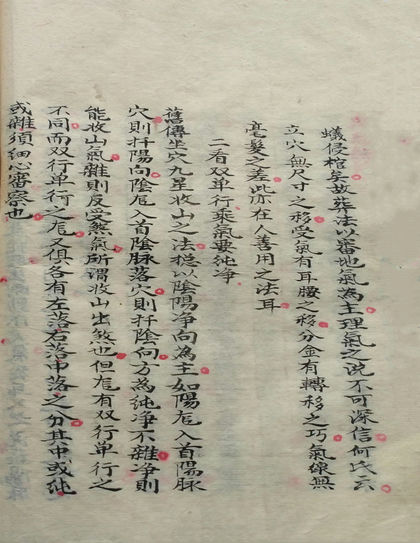 蟻侵棺矣故葬法以審地氣為主理氣之説不可深信何氏云
立穴無尺寸之移受氣有耳腰之移分金有轉移之巧氣線無
毫髮之差此亦在人善用之法耳
二看双单行乘氣要纯净
舊傳坐穴九星收山之法總以陰陽净向為主如陽龙入首陽脉
穴則扦陽向陰龙入首陰脉落穴則扦陰向方為纯净不雜净則
能收山氣雜則反受煞氣所謂收山出煞也但龙有双行单行之
不同而双行单行之龙又俱各有左落右落中落之分其中或纯
或雜須細心審察也